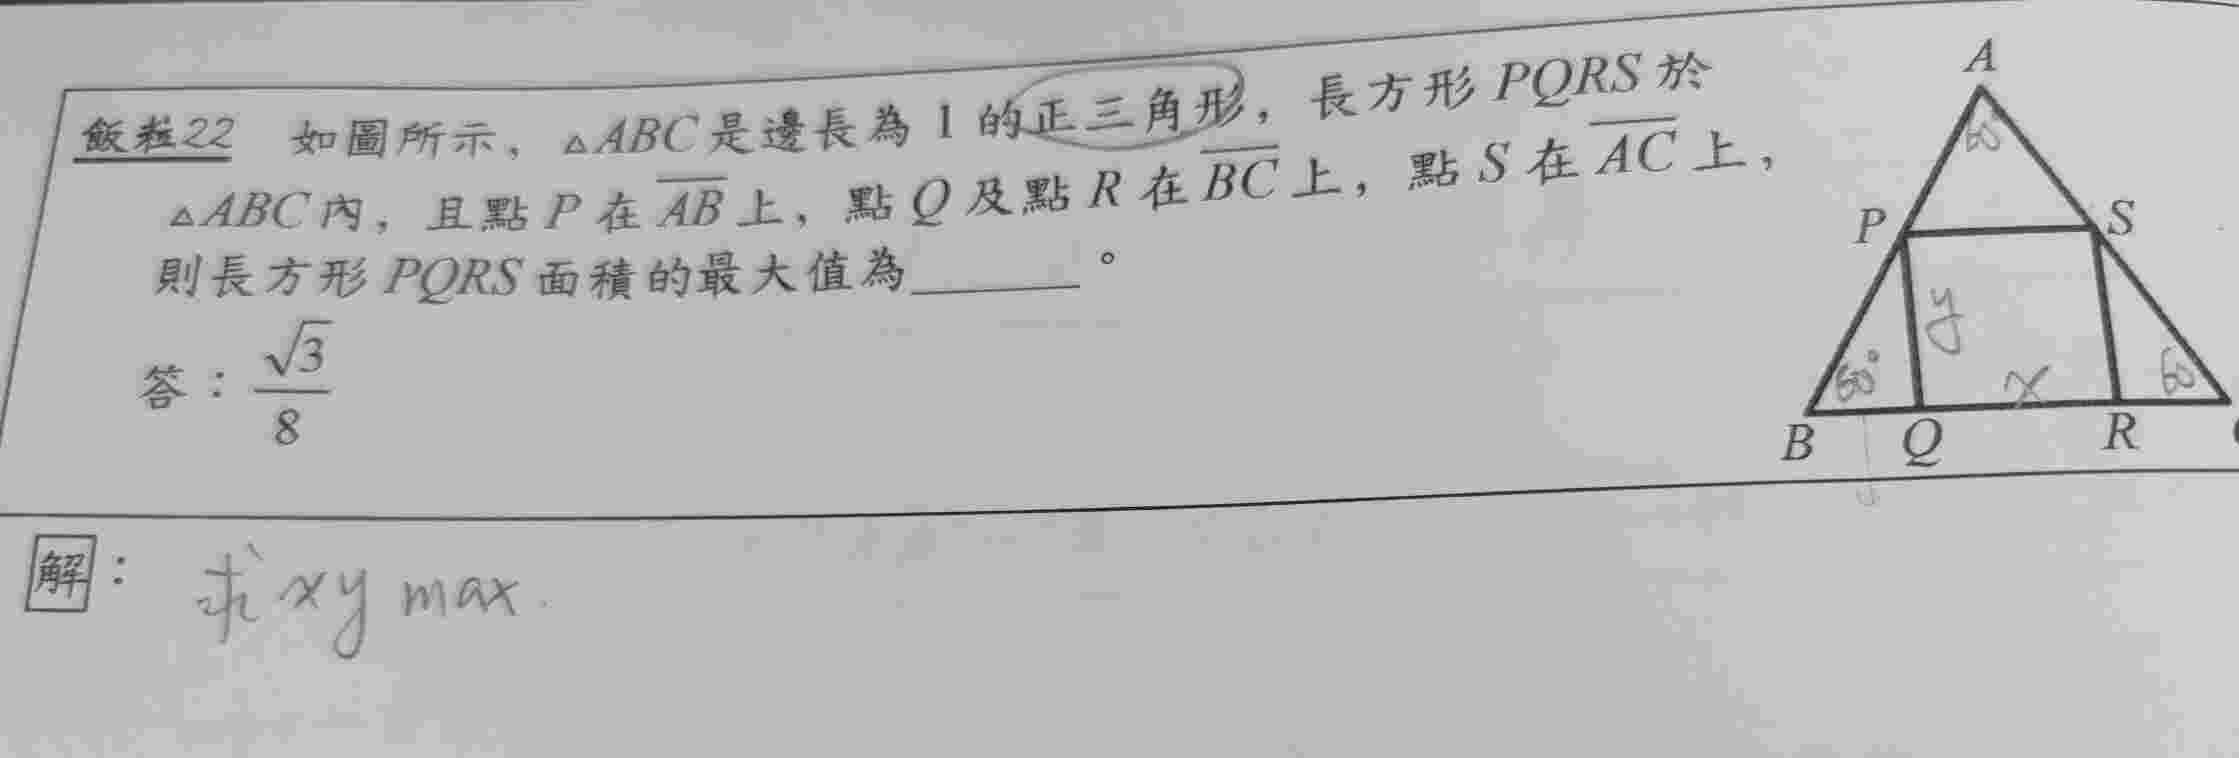 飯粒22 如圖所示，△ABC是邊長為1的正三角形，長方形PQRS於
△ABC內，且點P在AB上，點Q及點R在BC上，點S在AC上，
則長方形PQRS面積的最大值為______。
答：√3/8
A
60
P
S
y
60°
x
60
B
Q
R
解：求xy max.